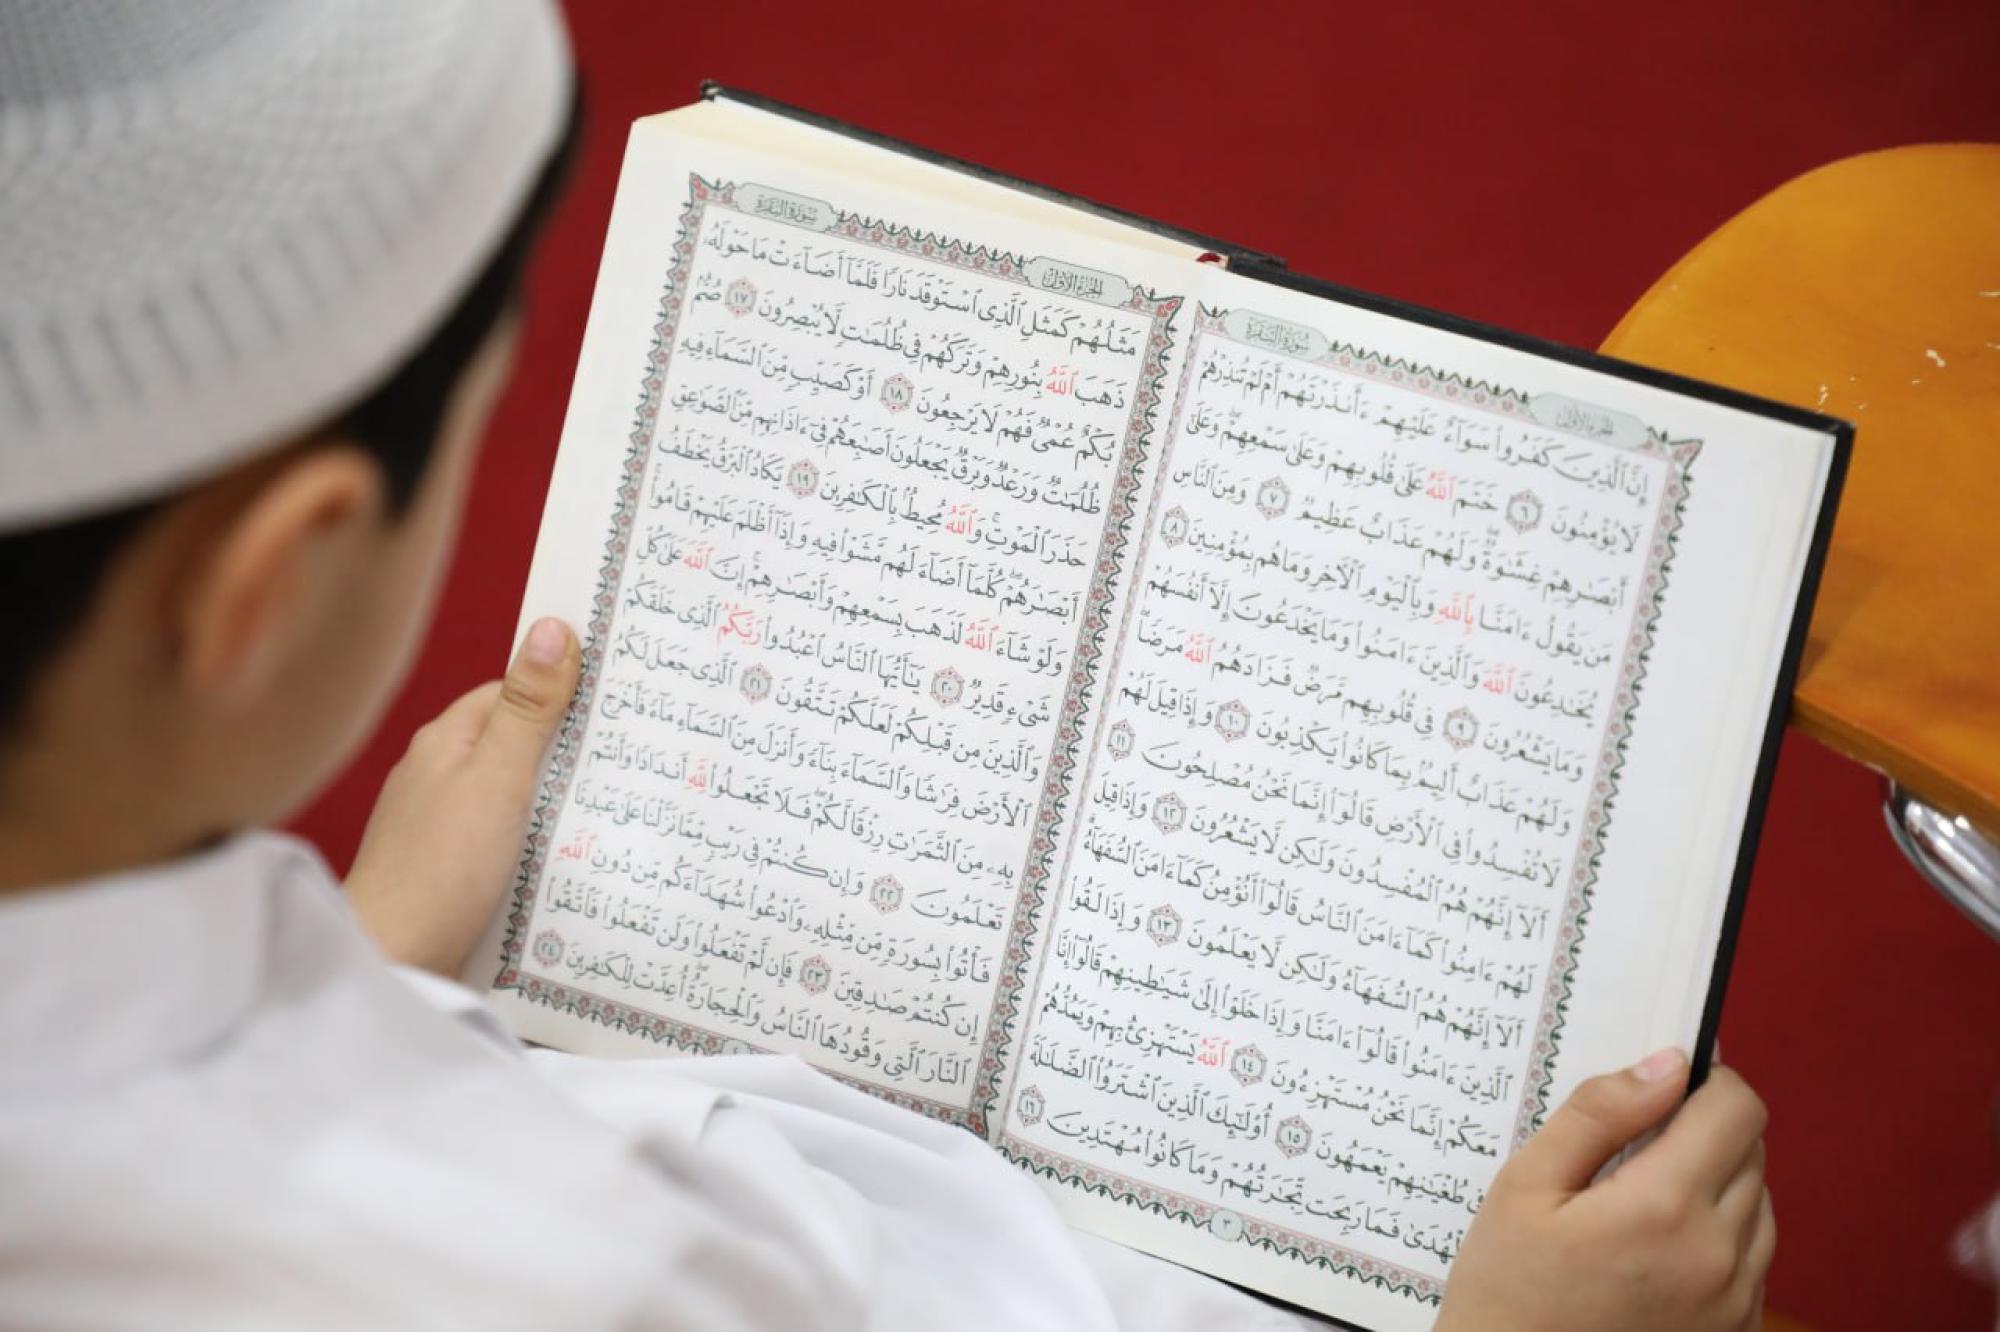 الجزء الأول
سورة البقرة
إِنَّ ٱلَّذِينَ كَفَرُوا۟ سَوَآءٌ عَلَيْهِمْ ءَأَنذَرْتَهُمْ أَمْ لَمْ تُنذِرْهُمْ
لَا يُؤْمِنُونَ ٦ خَتَمَ ٱللَّهُ عَلَىٰ قُلُوبِهِمْ وَعَلَىٰ سَمْعِهِمْ ۖ وَعَلَىٰٓ
أَبْصَٰرِهِمْ غِشَٰوَةٌ ۖ وَلَهُمْ عَذَابٌ عَظِيمٌ ٧ وَمِنَ ٱلنَّاسِ
مَن يَقُولُ ءَامَنَّا بِٱللَّهِ وَبِٱلْيَوْمِ ٱلْءَاخِرِ وَمَا هُم بِمُؤْمِنِينَ ٨
يُخَٰدِعُونَ ٱللَّهَ وَٱلَّذِينَ ءَامَنُوا۟ وَمَا يَخْدَعُونَ إِلَّآ أَنفُسَهُمْ
وَمَا يَشْعُرُونَ ٩ فِى قُلُوبِهِم مَّرَضٌ فَزَادَهُمُ ٱللَّهُ مَرَضًا ۖ
وَلَهُمْ عَذَابٌ أَلِيمٌۢ بِمَا كَانُوا۟ يَكْذِبُونَ ١٠ وَإِذَا قِيلَ لَهُمْ
لَا تُفْسِدُوا۟ فِى ٱلْأَرْضِ قَالُوٓا۟ إِنَّمَا نَحْنُ مُصْلِحُونَ ١١
أَلَآ إِنَّهُمْ هُمُ ٱلْمُفْسِدُونَ وَلَٰكِن لَّا يَشْعُرُونَ ١٢ وَإِذَا قِيلَ
لَهُمْ ءَامِنُوا۟ كَمَآ ءَامَنَ ٱلنَّاسُ قَالُوٓا۟ أَنُؤْمِنُ كَمَآ ءَامَنَ ٱلسُّفَهَآءُ ۗ
أَلَآ إِنَّهُمْ هُمُ ٱلسُّفَهَآءُ وَلَٰكِن لَّا يَعْلَمُونَ ١٣ وَإِذَا لَقُوا۟
ٱلَّذِينَ ءَامَنُوا۟ قَالُوٓا۟ ءَامَنَّا وَإِذَا خَلَوْا۟ إِلَىٰ شَيَٰطِينِهِمْ قَالُوٓا۟ إِنَّا
مَعَكُمْ إِنَّمَا نَحْنُ مُسْتَهْزِءُونَ ١٤ ٱللَّهُ يَسْتَهْزِئُ بِهِمْ وَيَمُدُّهُمْ
فِى طُغْيَٰنِهِمْ يَعْمَهُونَ ١٥ أُو۟لَٰٓئِكَ ٱلَّذِينَ ٱشْتَرَوُا۟ ٱلضَّلَٰلَةَ
بِٱلْهُدَىٰ فَمَا رَبِحَت تِّجَٰرَتُهُمْ وَمَا كَانُوا۟ مُهْتَدِينَ ١٦
٣
الجزء الأول
سورة البقرة
مَثَلُهُمْ كَمَثَلِ ٱلَّذِى ٱسْتَوْقَدَ نَارًا فَلَمَّآ أَضَآءَتْ مَا حَوْلَهُۥ
ذَهَبَ ٱللَّهُ بِنُورِهِمْ وَتَرَكَهُمْ فِى ظُلُمَٰتٍ لَّا يُبْصِرُونَ ١٧ صُمٌّۢ
بُكْمٌ عُمْىٌ فَهُمْ لَا يَرْجِعُونَ ١٨ أَوْ كَصَيِّبٍ مِّنَ ٱلسَّمَآءِ فِيهِ
ظُلُمَٰتٌ وَرَعْدٌ وَبَرْقٌ يَجْعَلُونَ أَصَٰبِعَهُمْ فِىٓ ءَاذَانِهِم مِّنَ ٱلصَّوَٰعِقِ
حَذَرَ ٱلْمَوْتِ ۚ وَٱللَّهُ مُحِيطٌۢ بِٱلْكَٰفِرِينَ ١٩ يَكَادُ ٱلْبَرْقُ يَخْطَفُ
أَبْصَٰرَهُمْ ۖ كُلَّمَآ أَضَآءَ لَهُم مَّشَوْا۟ فِيهِ وَإِذَآ أَظْلَمَ عَلَيْهِمْ قَامُوا۟ ۚ
وَلَوْ شَآءَ ٱللَّهُ لَذَهَبَ بِسَمْعِهِمْ وَأَبْصَٰرِهِمْ ۚ إِنَّ ٱللَّهَ عَلَىٰ كُلِّ
شَىْءٍ قَدِيرٌ ٢٠ يَٰٓأَيُّهَا ٱلنَّاسُ ٱعْبُدُوا۟ رَبَّكُمُ ٱلَّذِى خَلَقَكُمْ
وَٱلَّذِينَ مِن قَبْلِكُمْ لَعَلَّكُمْ تَتَّقُونَ ٢١ ٱلَّذِى جَعَلَ لَكُمُ
ٱلْأَرْضَ فِرَٰشًا وَٱلسَّمَآءَ بِنَآءً وَأَنزَلَ مِنَ ٱلسَّمَآءِ مَآءً فَأَخْرَجَ
بِهِۦ مِنَ ٱلثَّمَرَٰتِ رِزْقًا لَّكُمْ ۖ فَلَا تَجْعَلُوا۟ لِلَّهِ أَندَادًا وَأَنتُمْ
تَعْلَمُونَ ٢٢ وَإِن كُنتُمْ فِى رَيْبٍ مِّمَّا نَزَّلْنَا عَلَىٰ عَبْدِنَا
فَأْتُوا۟ بِسُورَةٍ مِّن مِّثْلِهِۦ وَٱدْعُوا۟ شُهَدَآءَكُم مِّن دُونِ ٱللَّهِ
إِن كُنتُمْ صَٰدِقِينَ ٢٣ فَإِن لَّمْ تَفْعَلُوا۟ وَلَن تَفْعَلُوا۟ فَٱتَّقُوا۟
ٱلنَّارَ ٱلَّتِى وَقُودُهَا ٱلنَّاسُ وَٱلْحِجَارَةُ ۖ أُعِدَّتْ لِلْكَٰفِرِينَ ٢٤